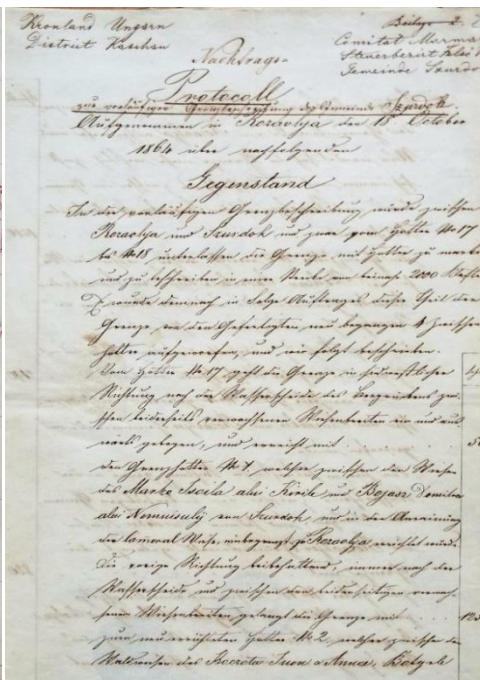 Kronland Ungarn
District Kaschau
Beilage 2
Comitat Marma
Steuerbezirk
Gemeinde Szurdo
Nachtrags-
Protocoll
zur vorläufigen Grenzbeschreibung der Gemeinde Szurdok
Aufgenommen in Rozavlja den 18 October
1864 über nachfolgenden
Gegenstand
In der vorläufigen Grenzbeschreibung wurde zwischen
Rozavlja und Szurdok und zwar vom Hotter No 17
bis No 18 unterlassen die Grenze mit Hotter zu mark
und zu beschreiben in einer Strecke von beinahe 2000 Klafter
Es wurde demnach in Folge Auftrages dieser Theil der
Grenze von den Gefertigten neu begangen 4 zwischen
Hotter aufgeworfen, und wie folgt beschrieben.
Vom Hotter No 17 geht die Grenze in südwestlicher
Richtung nach der Wasserscheide des Bergrückens zwi
schen beiderseits verwachsenen Wiesenbreiten ein und aus
wärts gebogen, und erreicht mit
den Grenzhotter No 1, welcher zwischen den Wiesen
des Marko Iscila alui Kirile und Bojasz Domitru
alui von Szurdok, und in der Anrainung
der Wiese, unbegrenzt zu Rozavlja errichtet wurde
Die vorige Richtung beibehaltend, immer nach der
Wasserscheide und zwischen den beiderseitigen verwach
senen Wiesenbreiten gelangt die Grenze mit
zum neu errichteten Hotter No 2, welcher zwischen den
Waldwiesen des Kocreta Iuon a Annca,